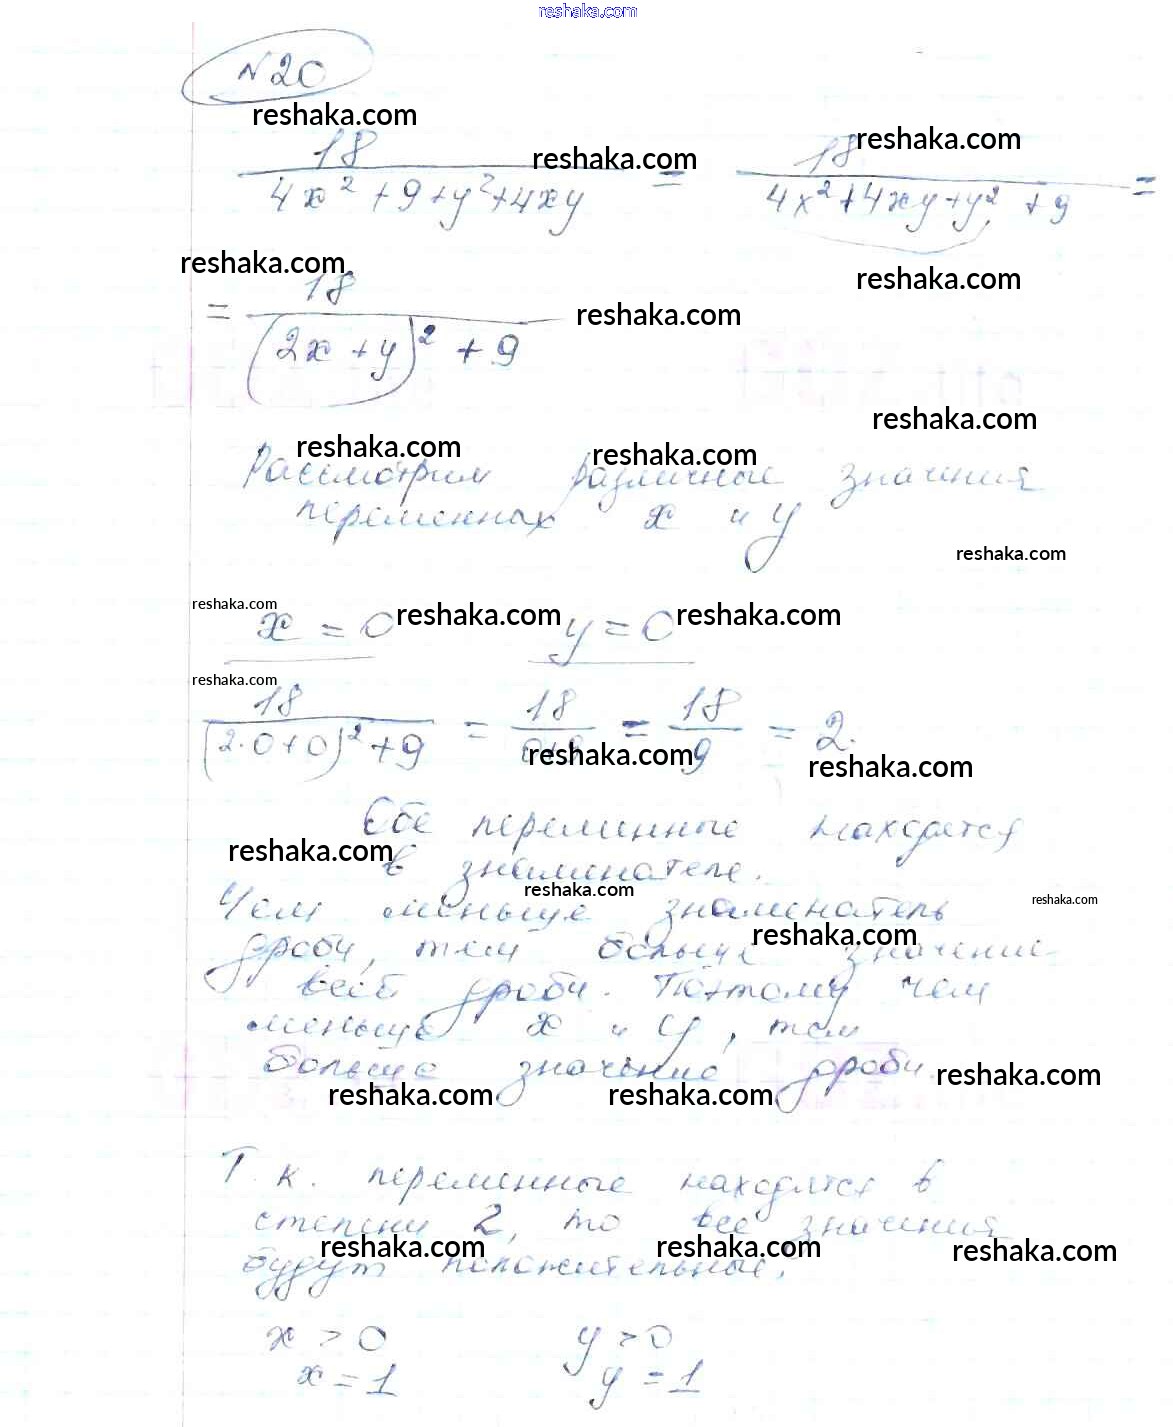 reshaka.com
N20
reshaka.com
18/(4x² + 9 + y² + 4xy) = 18/(4x² + 4xy + y² + 9) =
reshaka.com reshaka.com
reshaka.com reshaka.com
= 18/((2x + y)² + 9)
reshaka.com
reshaka.com
reshaka.com reshaka.com
Рассмотрим различные значения
переменнах x и y
reshaka.com
reshaka.com
x = 0 reshaka.com y = 0 reshaka.com
reshaka.com
18/((2·0+0)² + 9) = 18/(0+9) = 18/9 = 2.
reshaka.com reshaka.com
Обе переминные находятся
reshaka.com
в знаменателе.
reshaka.com reshaka.com
Чем меньше знаменатель
reshaka.com
дроби, тем больше значение
всей дроби. Поэтому чем
меньше x и y, тем
больше значение дроби.
reshaka.com
reshaka.com reshaka.com
Т.к. переменные находятся в
степени 2, то все значения
reshaka.com reshaka.com reshaka.com
будут положительные.
x > 0 y > 0
x = 1 y = 1